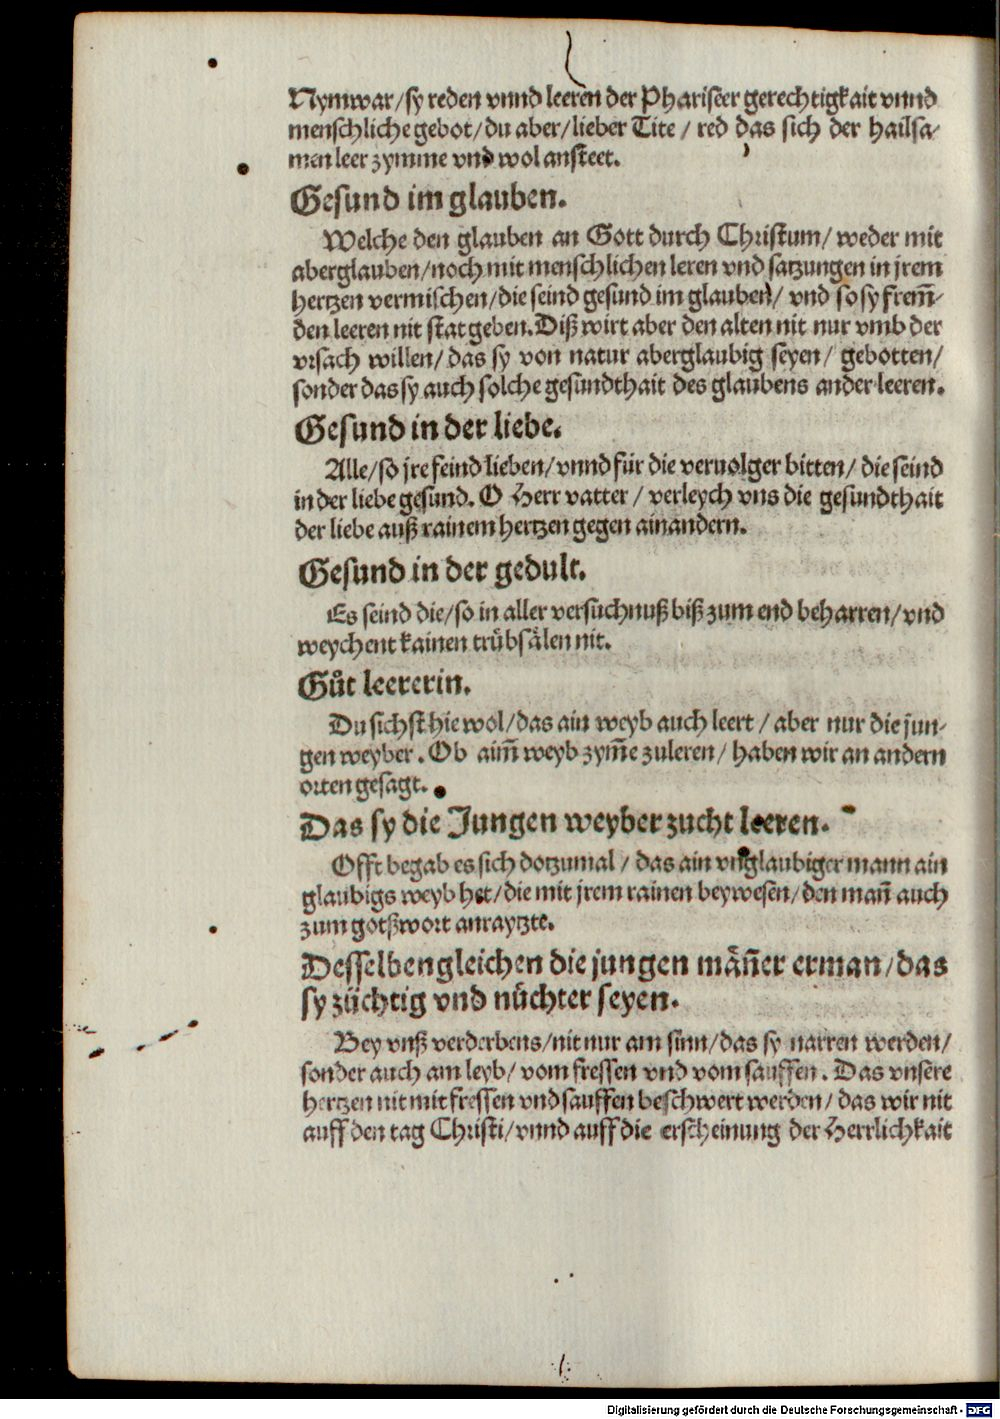 Nymwar/sy reden vnnd leeren der Phariseer gerechtigkait vnnd
menschliche gebot/du aber/lieber Tite/ red das sich der hailsa-
men leer zymme vnd wol ansteet.
Gesund im glauben.
Welche den glauben an Gott durch Christum/ weder mit
aberglauben/noch mit menschlichen leren vnd satzungen in jrem
hertzen vermischen/die seind gesund im glauben/ vnd so sy frem̄-
den leeren nit stat geben. Diß wirt aber den alten nit nur vmb der
vrsach willen/das sy von natur aberglaubig seyen/ gebotten/
sonder das sy auch solche gesundthait des glaubens ander leeren.
Gesund in der liebe.
Alle/so jre feind lieben/vnnd für die veruolger bitten/ die seind
in der liebe gesund. O Herr vatter/ verleych vns die gesundthait
der liebe auß rainem hertzen gegen ainandern.
Gesund in der gedult.
Es seind die/so in aller versuchnuß biß zum end beharren/vnd
weychent kainen trübsälen nit.
Gůt leererin.
Du sichst hie wol/das ain weyb auch leert/ aber nur die jun-
gen weyber. Ob aim̄ weyb zym̄e zuleren/ haben wir an andern
orten gesagt.
Das sy die Jungen weyber zucht leeren.
Offt begab es sich dotzumal/ das ain vnglaubiger mann ain
glaubigs weyb het/die mit jrem rainen beywesen/den man̄ auch
zum gotßwort anraytzte.
Desselbengleichen die jungen män̄er erman/das
sy züchtig vnd nüchter seyen.
Bey vnß verderbens/nit nur am sinn/das sy narren werden/
sonder auch am leyb/ vom fressen vnd vom sauffen. Das vnsere
hertzen nit mit fressen vnd sauffen beschwert werden/ das wir nit
auff den tag Christi/vnnd auff die erscheinung der Herrlichkait
Digitalisierung gefördert durch die Deutsche Forschungsgemeinschaft - DFG